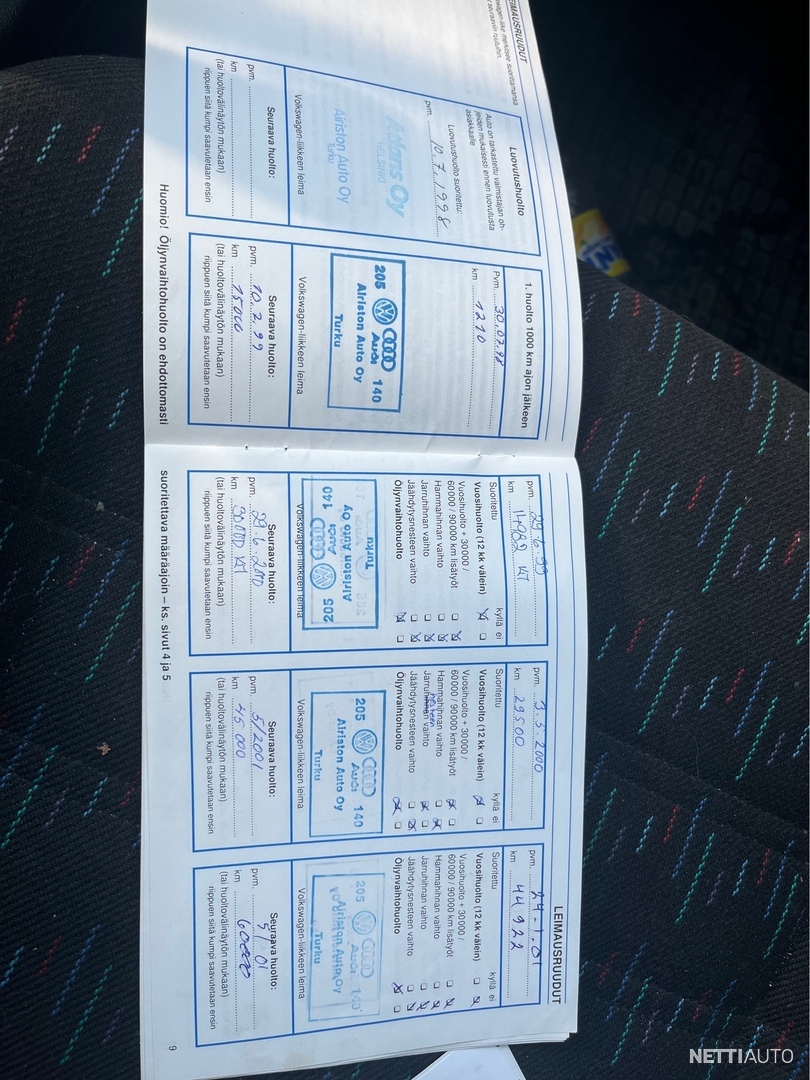 LEIMAUSRUUDUT
Luovutushuolto
Auto on tarkastettu valmistajan oh-
jeiden mukaisesti ennen luovutusta
asiakkaalle
Luovutushuolto suoritettu:
pvm. 10.7.1998
HELSINKI
Airiston Auto Oy
Turku
Volkswagen-liikkeen leima
Seuraava huolto:
pvm.
km
(tai huoltovälinäytön mukaan)
riippuen siitä kumpi saavutetaan ensin
1. huolto 1000 km ajon jälkeen
Pvm. 30.07.98
km 1210
205 Audi 140
Airiston Auto Oy
Turku
Volkswagen-liikkeen leima
Seuraava huolto:
pvm. 10.7.99
km 15000
(tai huoltovälinäytön mukaan)
riippuen siitä kumpi saavutetaan ensin
Huomio! Öljynvaihtohuolto on ehdottomasti
pvm. 29.6.99
km 14982
Suoritettu kyllä ei
Vuosihuolto (12 kk välein)
Vuosihuolto + 30000 /
60000 / 90000 km lisätyöt
Hammahihnan vaihto
Jarruhihnan vaihto
Jäähdytysnesteen vaihto
Öljynvaihtohuolto
205 Audi 140
Airiston Auto Oy
Turku
Volkswagen-liikkeen leima
Seuraava huolto:
pvm. 29.6.2000
km 30000
(tai huoltovälinäytön mukaan)
riippuen siitä kumpi saavutetaan ensin
pvm. 3.5.2000
km 29500
Suoritettu kyllä ei
Vuosihuolto (12 kk välein)
Vuosihuolto + 30000 /
60000 / 90000 km lisätyöt
Hammahihnan vaihto
Jarruhihnan vaihto
nesteen
Jäähdytysnesteen vaihto
Öljynvaihtohuolto
205 Audi 140
Airiston Auto Oy
Turku
Volkswagen-liikkeen leima
Seuraava huolto:
pvm. 5/2001
km 45000
(tai huoltovälinäytön mukaan)
riippuen siitä kumpi saavutetaan ensin
LEIMAUSRUUDUT
pvm. 24-1.01
km 44922
Suoritettu kyllä ei
Vuosihuolto (12 kk välein)
Vuosihuolto + 30000 /
60000 / 90000 km lisätyöt
Hammahihnan vaihto
Jarruhihnan vaihto
Jäähdytysnesteen vaihto
Öljynvaihtohuolto
205 Audi 140
Airiston Auto Oy
Turku
Volkswagen-liikkeen leima
Seuraava huolto:
pvm. 5/01
km 60000
(tai huoltovälinäytön mukaan)
riippuen siitä kumpi saavutetaan ensin
suoritettava määräajoin – ks. sivut 4 ja 5
9
NETTIAUTO